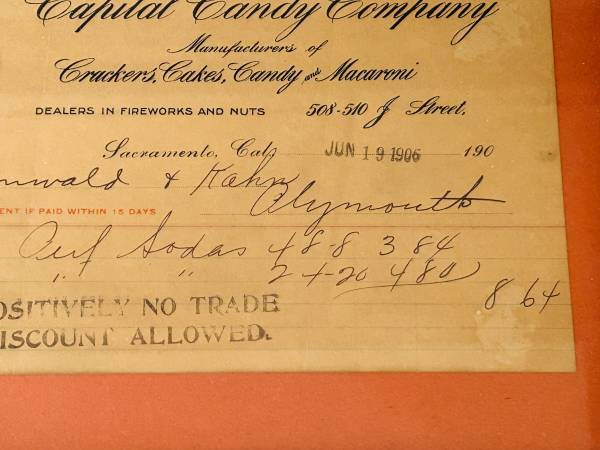 Capital Candy Company
Manufacturers of
Crackers, Cakes, Candy and Macaroni
DEALERS IN FIREWORKS AND NUTS 508-510 J Street.
Sacramento, Cal. JUN 19 1906 190
nwald & Kahn
Plymouth
ENT IF PAID WITHIN 15 DAYS
Sodas 48-8 3 84
" " 24-20 4 80
8 64
OSITIVELY NO TRADE
ISCOUNT ALLOWED.